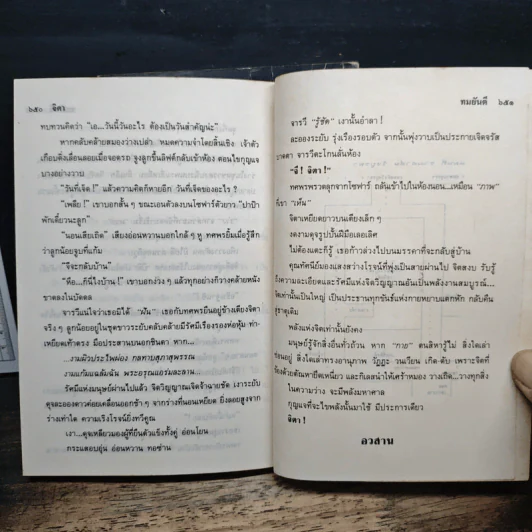 ๖๕๐ จิตา
ทบทวนคิดว่า "เอ...วันนี้วันอะไร ต้องเป็นวันสำคัญน่ะ"
หากกลับคล้ายสมองว่างเปล่า หมดความจำโดยสิ้นเชิง เจ้าตัว
เกือบดิ่งเลื่อนลอยเมื่อจอดรถ จูงลูกขึ้นลิฟต์กลับเข้าห้อง ตอนไขกุญแจ
บางอย่างวาบ
"วันที่เจ็ด!" แล้วความคิดก็หายอีก วันที่เจ็ดของอะไร?
"เพลีย!" เขาบอกสั้น ๆ ขณะเอนตัวลงบนโซฟาร์ตัวยาว "ปาป้า
พักเดี๋ยวนะลูก"
"นอนเสียเถิด" เสียงอ่อนหวานบอกใกล้ ๆ หู ทศพรยิ้มเมื่อรู้สึก
ว่าลูกน้อยจูบที่แก้ม
"จีจะกลับบ้าน"
"ฮือ...ก็นี่ไงบ้าน!" เขาบอกง่วง ๆ แล้วทุกอย่างก็วางคล้ายหนัง
ขาดลงในบัดดล
จารวีแน่ใจว่าเธอมิได้ "ฝัน" เธอกับทศพรยืนอยู่ข้างเตียงจิตา
จริง ๆ ลูกน้อยอยู่ในชุดขาวระยับคลับคล้ายมีรัศมีเรืองรองห่อหุ้ม ท่า-
เหยียดเท้าตรง มือประสานบนอกชิดตา หาก...
...งามผิวประไพผ่อง กลทาบสุภาสุพรรณ
งามแก้มแฉล้มฉัน พระอรุณแอร่มละลาน...
รัศมีแห่งมนุษย์ผ่านไปแล้ว จิตวิญญาณเจิดจ้าฉายชัด เงาระยับ
ดุจละอองดาวค่อยเคลื่อนออกช้า ๆ จากร่างที่นอนเหยียด ยิ่งลอยสูงจาก
ร่างเท่าใด ความเรืองโรจน์ยิ่งทวีคูณ
เงา...ดุจเหลียวมองผู้ที่ยืนตัวแข็งทั้งคู่ อ่อนโยน
กระแสอบอุ่น อ่อนหวาน ทอซ่าน
ทมยันตี ๖๕๑
จารวี "รู้ชัด" เงานั้นอำลา!
ละอองระยับ รุ่งเรืองรอบตัว จากนั้นพุ่งวาบเป็นประกายเจิดจรัส
บาดตา จารวีตะโกนลั่นห้อง
"จี! จิตา!"
ทศพรพรวดลุกจากโซฟาร์ ถลันเข้าไปในห้องนอน...เหมือน "ภาพ"
ที่เขา "เห็น"
จิตาเหยียดยาวบนเตียงเล็ก ๆ
งดงามดุจรูปปั้นฝีมือเลอเลิศ
ไม่ต้องแตะก็รู้ เธอก้าวล่วงไปบนมรรคาที่จะกลับสู่บ้าน
คุณทัศนีย์มองแสงสว่างโรจน์ที่พุ่งเป็นสายผ่านไป จิตสงบ รับรู้
ถึงความละเอียดและรัศมีแห่งจิตวิญญาณอันเป็นพลังงานสมบูรณ์...
จิตเท่านั้นเป็นใหญ่ เป็นประธานทุกขันธ์แห่งกายหยาบแตกหัก กลับคืน
สู่ธาตุเดิม
พลังแห่งจิตเท่านั้นยังคง
มนุษย์รู้จักสิ่งอื่นทั่วถ้วน หาก "กาย" ตนสิหารู้ไม่ สิ่งใดเล่า
ซ่อนอยู่ สิ่งใดเล่าทรงอานุภาพ วัฏฏะ วนเวียน เกิด-ดับ เพราะจิตที่
ร้อยด้วยตัณหายึดเหนี่ยว และกิเลสนำให้เศร้าหมอง วางเถิด...วางทุกสิ่ง
ในความว่าง จะมีพลังมหาศาล
กุญแจที่จะไขพลังนั้นมาใช้ มีประการเดียว
จิตา!
อวสาน